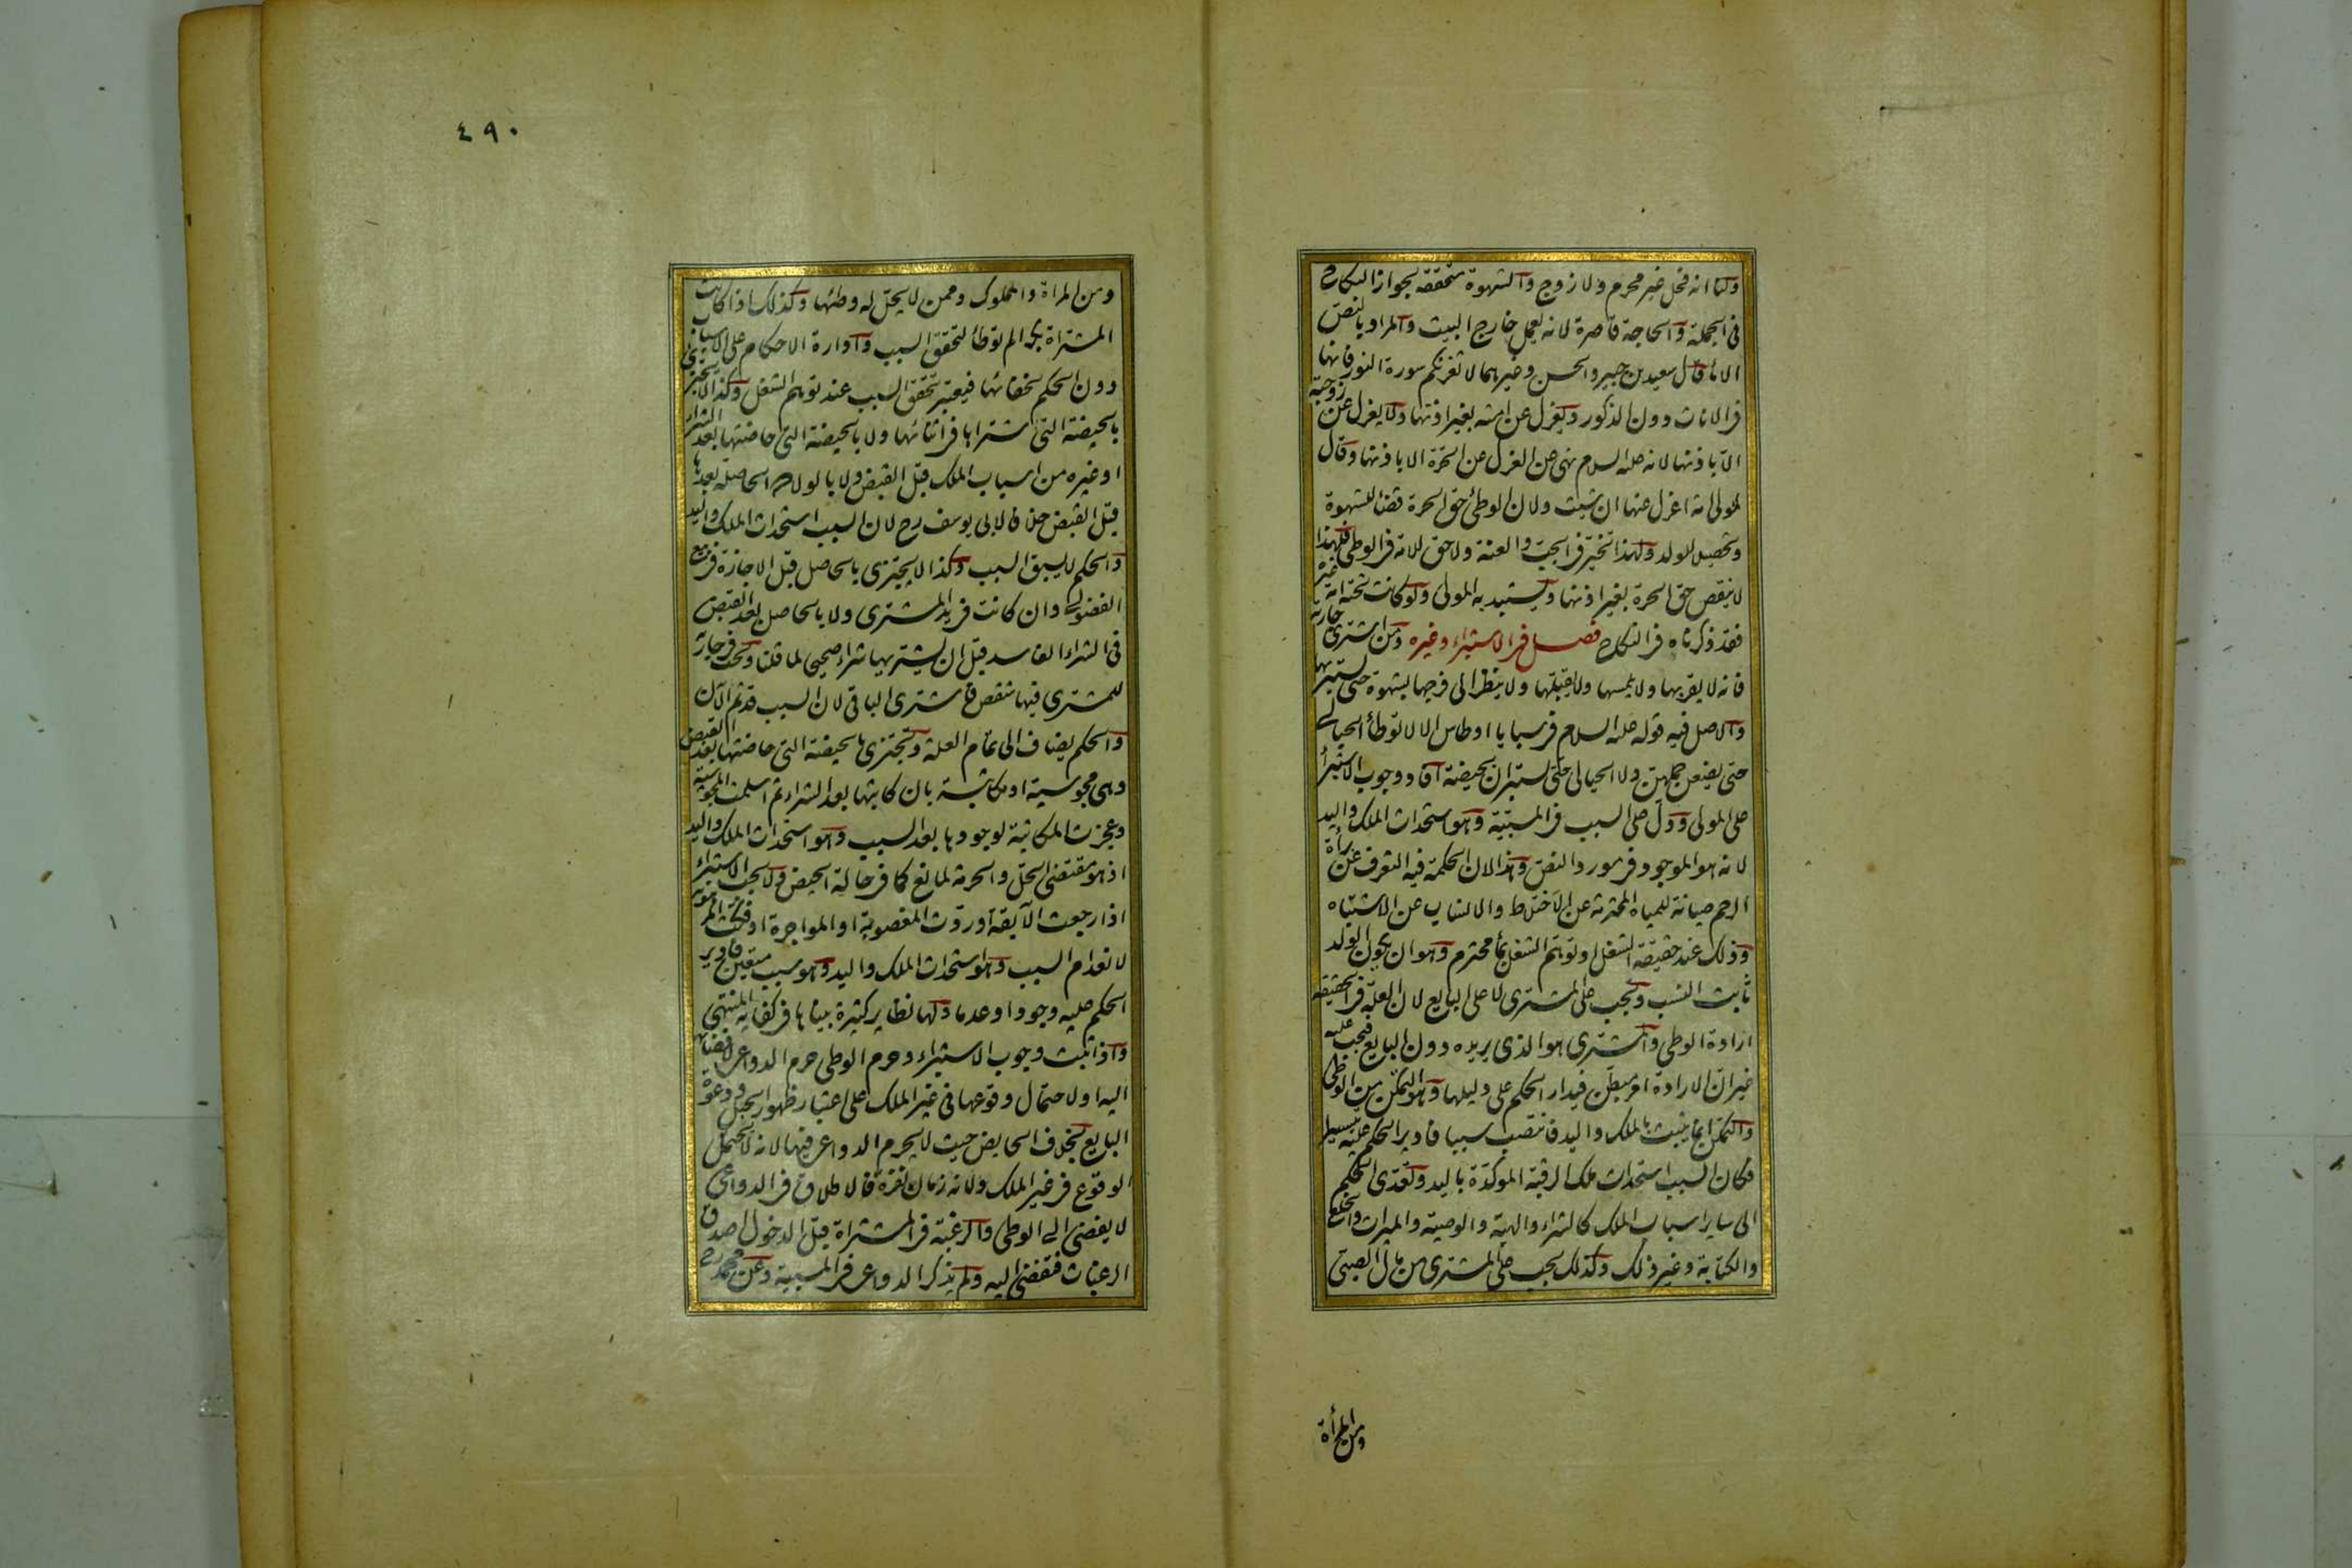 ولنا انه فحل غير محرم ولا زوج والشهوة متحققة لجواز النكاح
فى الجملة والحاجة قاصرة لانه يعمل خارج البيت والمراد بالنص
الاماء قال سعيد بن جبير والحسن وغيرهما لا تغرنكم سورة النور فانها
فى الاناث دون الذكور ويعزل عن امته بغير اذنها ولا يعزل عن زوجته
الا باذنها لانه عليه السلام نهى عن العزل عن الحرة الا باذنها وقال
لمولى امة اعزل عنها ان شئت ولان الوطئ حق الحرة قضاء للشهوة
وتحصيلا للولد ولهذا تخير فى الجب والعنة ولا حق للامة فى الوطى فلهذا
لا ينقص حق الحرة بغير اذنها ويستبد به المولى ولو كانت تحته امة غيره
فقد ذكرناه فى النكاح فصل فى الاستبراء وغيره ومن اشترى جارية
فانه لا يقربها ولا يلمسها ولا يقبلها ولا ينظر الى فرجها بشهوة حتى يستبريها
والاصل فيه قوله عليه السلام فى سبايا اوطاس الا لا توطأ الحبالى
حتى يضعن حملهن ولا الحيالى حتى يستبران بحيضة افاد وجوب الاستبراء
على المولى ودل على السبب فى المسبية وهو استحداث الملك واليد
لانه هو الموجود فى مورد النص وهذا لان الحكمة فيه التعرف عن برأة
الرحم صيانة للمياه المحترمة عن الاختلاط والانساب عن الاشتباه
وذلك عند حقيقة الشغل او توهم الشغل بماء محترم وهو ان يكون الولد
ثابت النسب ويجب على المشترى لا على البايع لان العلة فى الحقيقة
ارادة الوطى والمشترى هو الذى يريده دون البايع فيجب عليه
غير ان الارادة امر مبطن فيدار الحكم على دليلها وهو التمكن من الوطى
والتمكن انما يثبت بالملك واليد فانتصب سببا فادير الحكم عليه تيسيرا
فكان السبب استحداث ملك الرقبة المؤكدة باليد وتعدى الحكم
الى ساير اسباب الملك كالشراء والهبة والوصية والميراث والخلع
والكتابة وغير ذلك وكذلك يجب على المشترى من مال الصبى
ومن المرأة
٤٩٠
ومن المراة والمملوك وممن لا يحل له وطئها وكذلك اذا كانت
المشتراة بكرا لم توطأ لتحقق السبب وادارة الاحكام على الاسباب
دون الحكم لخفائها فيعتبر تحقق السبب عند توهم الشغل وكذا لا يجتزى
بالحيضة التى اشتراها فى اثنائها ولا بالحيضة التى حاضتها بعد الشراء
او غيره من اسباب الملك قبل القبض ولا بالولادة الحاصلة بعدها
قبل القبض خلافا لابى يوسف رح لان السبب استحداث الملك واليد
والحكم لا يسبق السبب وكذا لا يجتزى بالحاصل قبل الاجازة فى بيع
الفضولى وان كانت فى يد المشترى ولا بالحاصل بعد القبض
فى الشراء الفاسد قبل ان يشتريها شراء صحيحا لما قلنا وتجب فى جارية
للمشترى فيها شقص فاشترى الباقى لان السبب قد تم الآن
والحكم يضاف الى تمام العلة ويجتزى بالحيضة التى حاضتها بعد القبض
وهى مجوسية او مكاتبة بان كاتبها بعد الشراء ثم اسلمت المجوسية
وعجزت المكاتبة لوجودها بعد السبب وهو استحداث الملك واليد
اذ هو مقتضى الحل والحرمة لمانع كما فى حالة الحيض ولا يجب الاستبراء
اذا رجعت الآبقة او ردت المغصوبة او المواجرة او فكت المرهونة
لانعدام السبب وهو استحداث الملك واليد وهو سبب متعين فادير
الحكم عليه وجودا وعدما ولها نظاير كثيرة بيناها فى كفاية المنتهى
واذا ثبت وجوب الاستبراء وحرم الوطى حرم الدواعى لافضائها
اليه او لاحتمال وقوعها فى غير الملك على اعتبار ظهور الحبل ودعوة
البايع بخلاف الحايض حيث لا يحرم الدواعى فيها لانه لا يحتمل
الوقوع فى غير الملك ولانه زمان نفرة فالاطلاق فى الدواعى
لا يفضى الى الوطى والرغبة فى المشتراة قبل الدخول اصدق
الرغبات فتفضى اليه ولم يذكر الدواعى فى المسبية وعن محمد رح